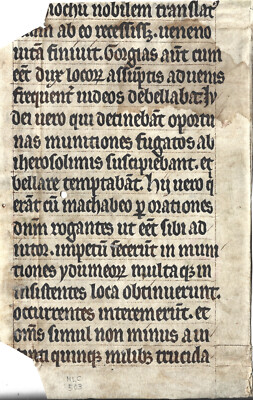 iochu nobilem translat᾽
am ab eo recessisꝫ. ueneno
uitā finiuit. Gorgias aūt cum
eēt dux locoꝝ assūptis aduenis
frequent᾽ iudeos debellabat. Iv
dei uero qui detinebant oportu
nas munitiones fugatos ab
iherosolimis suscipiebant. et
bellare temptabāt. Hij uero q
erāt cū machabeo ꝑ orationes
dn̄m rogantes ut eēt sibi ad
iutor. impetū fecerūt in muni
tiones ydumeoꝝ multaqꝫ in
insistentes loca obtinuerunt.
occurrentes interemerūt. et
om̄s simul non minus a ui
quinqꝫ milibꝫ trucida
NLC
503